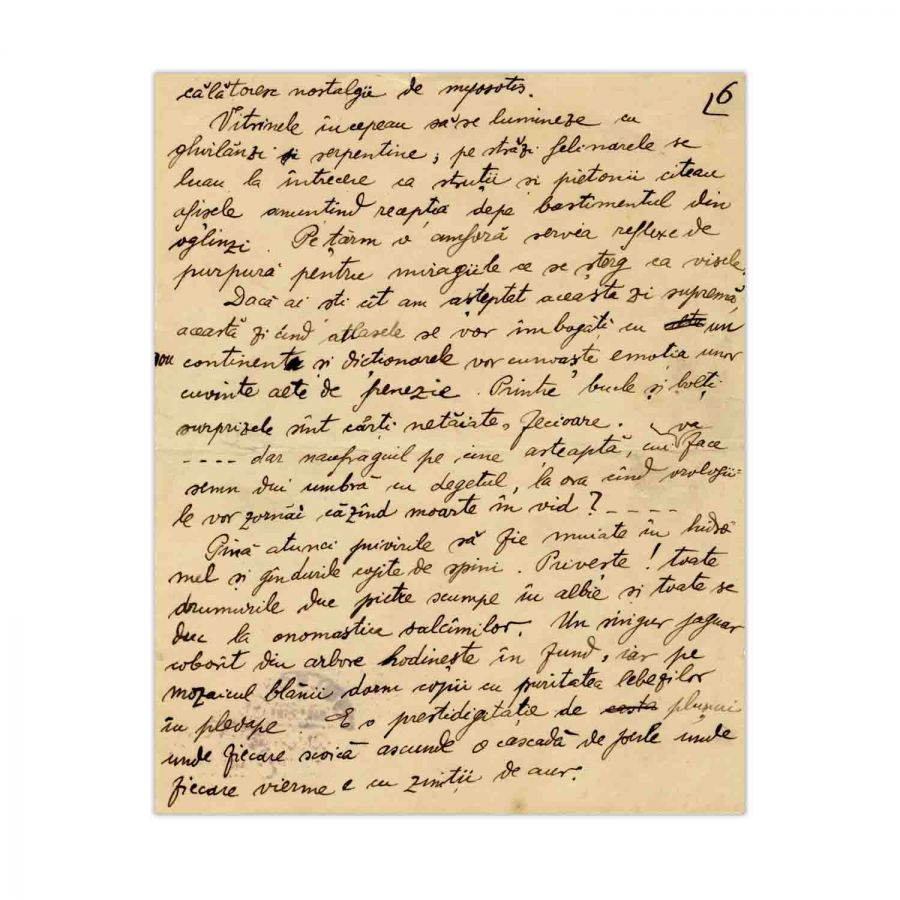 6
călătoresc nostalgii de myosotis.
Vitrinele începeau să se lumineze cu
ghirlănzi și serpentine; pe străzi felinarele se
luau la întrecere ca struții si pietonii citeau
afișele anuntind reapția depe bastimentul din
oglinzi. Pe tărm o amforă servea reflexe de
purpură pentru miragiile ce se șterg ca visele.
Dacă ai sti cît am așteptat aceasta zi supremă,
această zi cînd atlasele se vor îmbogăți cu un
nou continent si dictionarele vor cunoaște emotia unor
cuvinte alte de frenezie. Printre bucle și bolți
surprizele sînt cărti netăiate, fecioare.
---- dar naufragiul pe cine asteaptă, cui va face
semn din umbră cu degetul, la ora cînd orologii-
le vor zornăi căzînd moarte în vid? ----
Pînă atunci privirile să fie muiate în hidro
mel și gîndurile cojite de spini. Priveste! toate
drumurile duc pietre scumpe în albie si toate se
duc la onomastica salcîmilor. Un singur jaguar
coborît din arbore hodinește în fund, iar pe
mozaicul blănii dorm copii cu puritatea lebezilor
în pleoape. E o prestidigitatie de plușuri
unde fiecare scoică ascunde o cascadă de perle unde
fiecare vierme e cu zimții de aur.